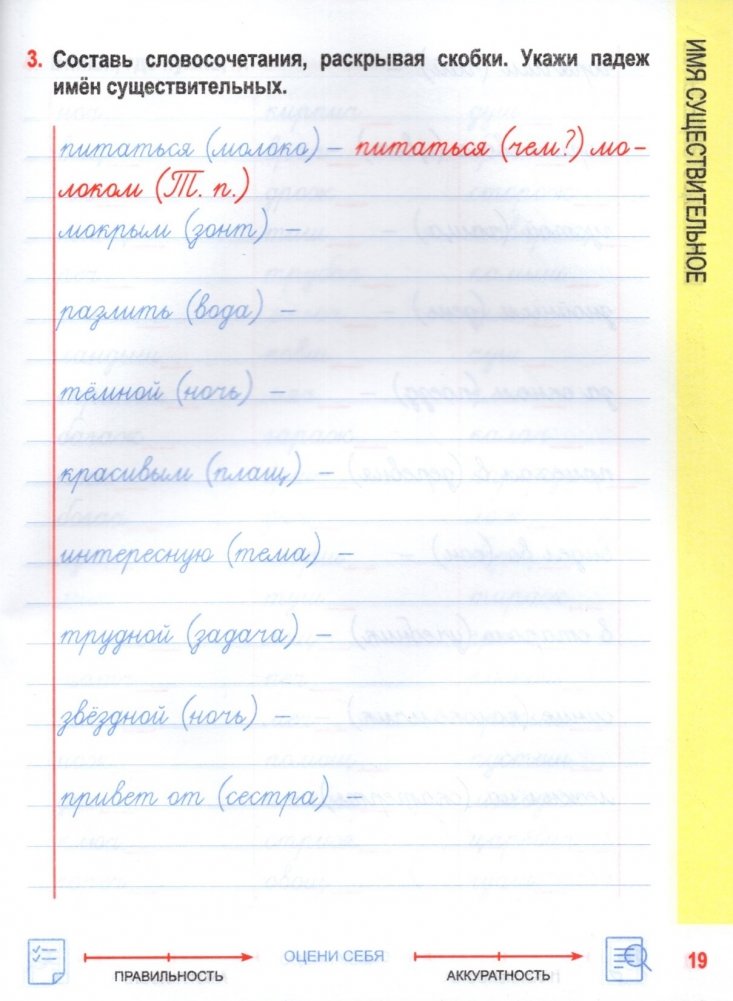 3. Составь словосочетания, раскрывая скобки. Укажи падеж
имён существительных.
ИМЯ СУЩЕСТВИТЕЛЬНОЕ
питаться (молоко) – питаться (чем?) мо-
локом (Т. п.)
мокрым (зонт) –
разлить (вода) –
тёмной (ночь) –
красивым (плащ) –
интересную (тема) –
трудной (задача) –
звёздной (ночь) –
привет от (сестра) –
ПРАВИЛЬНОСТЬ
ОЦЕНИ СЕБЯ
АККУРАТНОСТЬ
19